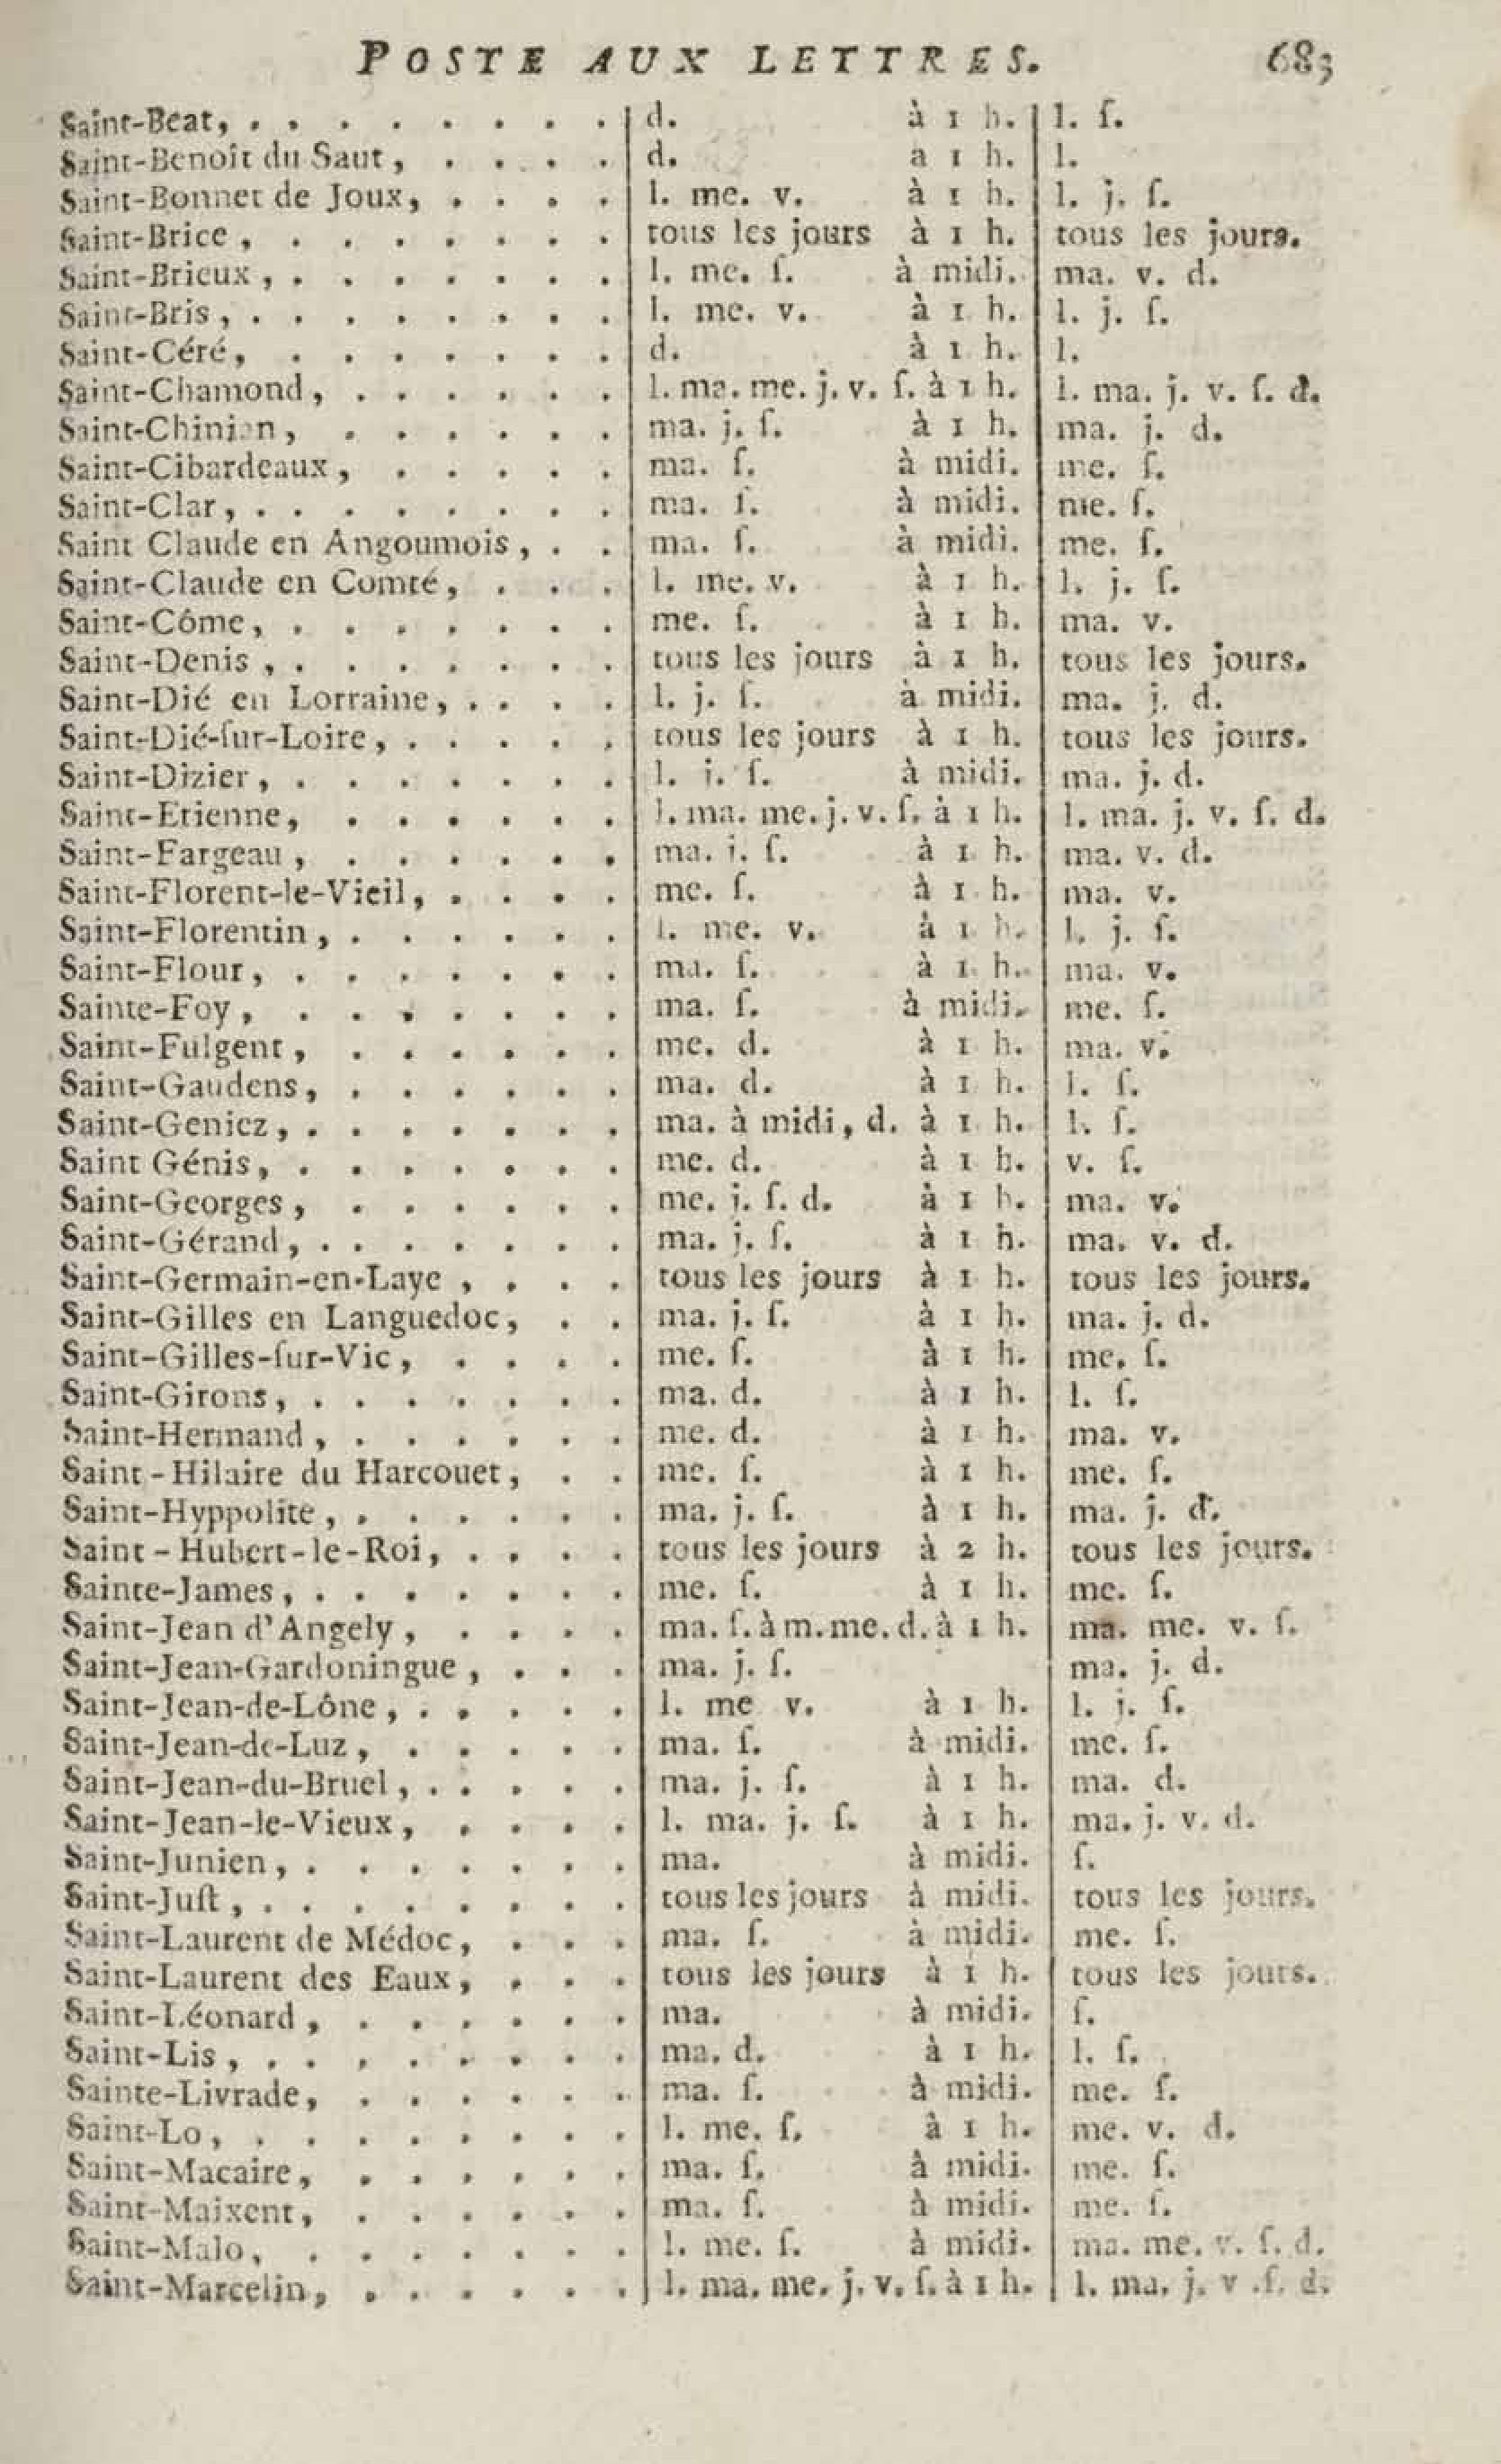 POSTE AUX LETTRES. 683
Saint-Beat, . . . . . . . . . d. à 1 h. l. ſ.
Saint-Benoît du Saut, . . . . d. a 1 h. l.
Saint-Bonnet de Joux, . . . . l. me. v. à 1 h. l. j. ſ.
Saint-Brice, . . . . . . . . tous les jours à 1 h. tous les jours.
Saint-Brieux, . . . . . . . l. me. ſ. à midi. ma. v. d.
Saint-Bris, . . . . . . . . l. me. v. à 1 h. l. j. ſ.
Saint-Céré, . . . . . . . d. à 1 h. l.
Saint-Chamond, . . . . . . l. ma. me. j. v. ſ. à 1 h. l. ma. j. v. ſ. d.
Saint-Chinian, . . . . . . ma. j. ſ. à 1 h. ma. j. d.
Saint-Cibardeaux, . . . . . ma. ſ. à midi. me. ſ.
Saint-Clar, . . . . . . . . ma. ſ. à midi. me. ſ.
Saint Claude en Angoumois, . . ma. ſ. à midi. me. ſ.
Saint-Claude en Comté, . . . l. me. v. à 1 h. l. j. ſ.
Saint-Côme, . . . . . . . me. ſ. à 1 h. ma. v.
Saint-Denis, . . . . . . . tous les jours à 1 h. tous les jours.
Saint-Dié en Lorraine, . . . . l. j. ſ. à midi. ma. j. d.
Saint-Dié-ſur-Loire, . . . . . tous les jours à 1 h. tous les jours.
Saint-Dizier, . . . . . . . l. j. ſ. à midi. ma. j. d.
Saint-Etienne, . . . . . . l. ma. me. j. v. ſ. à 1 h. l. ma. j. v. ſ. d.
Saint-Fargeau, . . . . . . ma. j. ſ. à 1 h. ma. v. d.
Saint-Florent-le-Vieil, . . . . me. ſ. à 1 h. ma. v.
Saint-Florentin, . . . . . . l. me. v. à 1 h. l. j. ſ.
Saint-Flour, . . . . . . . ma. ſ. à 1 h. ma. v.
Sainte-Foy, . . . . . . . ma. ſ. à midi. me. ſ.
Saint-Fulgent, . . . . . . me. d. à 1 h. ma. v.
Saint-Gaudens, . . . . . . ma. d. à 1 h. l. ſ.
Saint-Geniez, . . . . . . . ma. à midi, d. à 1 h. l. ſ.
Saint Génis, . . . . . . . me. d. à 1 h. v. ſ.
Saint-Georges, . . . . . . me. j. ſ. d. à 1 h. ma. v.
Saint-Gérand, . . . . . . . ma. j. ſ. à 1 h. ma. v. d.
Saint-Germain-en-Laye, . . . . tous les jours à 1 h. tous les jours.
Saint-Gilles en Languedoc, . . ma. j. ſ. à 1 h. ma. j. d.
Saint-Gilles-ſur-Vic, . . . . me. ſ. à 1 h. me. ſ.
Saint-Girons, . . . . . . . ma. d. à 1 h. l. ſ.
Saint-Hermand, . . . . . . me. d. à 1 h. ma. v.
Saint-Hilaire du Harcouet, . . me. ſ. à 1 h. me. ſ.
Saint-Hyppolite, . . . . . . ma. j. ſ. à 1 h. ma. j. d.
Saint-Hubert-le-Roi, . . . . tous les jours à 2 h. tous les jours.
Sainte-James, . . . . . . . me. ſ. à 1 h. me. ſ.
Saint-Jean d'Angely, . . . . ma. ſ. à m. me. d. à 1 h. ma. me. v. ſ.
Saint-Jean-Gardoningue, . . . ma. j. ſ. ma. j. d.
Saint-Jean-de-Lône, . . . . . l. me v. à 1 h. l. j. ſ.
Saint-Jean-de-Luz, . . . . . ma. ſ. à midi. me. ſ.
Saint-Jean-du-Bruel, . . . . . ma. j. ſ. à 1 h. ma. d.
Saint-Jean-le-Vieux, . . . . l. ma. j. ſ. à 1 h. ma. j. v. d.
Saint-Junien, . . . . . . . ma. à midi. ſ.
Saint-Juſt, . . . . . . . . tous les jours à midi. tous les jours.
Saint-Laurent de Médoc, . . . ma. ſ. à midi. me. ſ.
Saint-Laurent des Eaux, . . . tous les jours à 1 h. tous les jours.
Saint-Léonard, . . . . . . ma. à midi. ſ.
Saint-Lis, . . . . . . . . ma. d. à 1 h. l. ſ.
Sainte-Livrade, . . . . . . ma. ſ. à midi. me. ſ.
Saint-Lo, . . . . . . . . l. me. ſ. à 1 h. me. v. d.
Saint-Macaire, . . . . . . ma. ſ. à midi. me. ſ.
Saint-Maixent, . . . . . . ma. ſ. à midi. me. ſ.
Saint-Malo, . . . . . . . l. me. ſ. à midi. ma. me. v. ſ. d.
Saint-Marcelin, . . . . . . l. ma. me. j. v. ſ. à 1 h. l. ma. j. v. ſ. d.